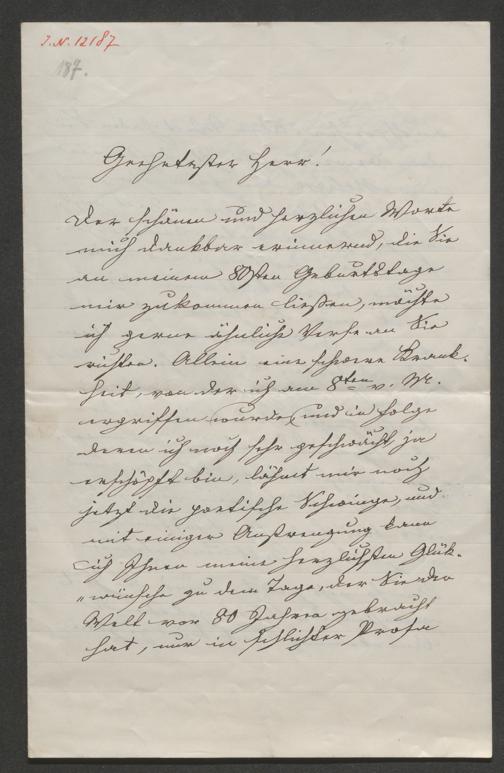 J. N. 12187
187.
Geehrtester Herr!
Der schönen und herzlichen Worte
mich dankbar erinnernd, die Sie
an meinem 80sten Geburtstage
mir zukommen ließen, möchte
ich gerne ähnliche Verse an Sie
richten. Allein eine schwere Krank-
heit, von der ich am 8ten v. M.
ergriffen wurde, und in Folge
deren ich noch sehr geschwächt, ja
erschöpft bin, lähmt mir noch
jetzt die poetische Schwinge, und
mit einiger Anstrengung kann
ich Ihnen meine herzlichsten Glük-
„wünsche zu dem Tage, der Sie der
Welt vor 80 Jahren gebracht
hat, nur in schlichter Prosa